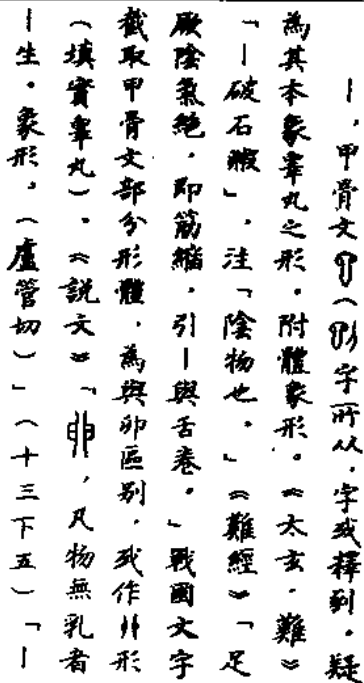 ｜，甲骨文（字所从，字或釋。疑
為其本象睾丸之形。附體象形。《太玄·難》
「｜破石毈」，注「陰物也。」《難經》「足
厥陰氣絕，即筋縮，引｜與舌卷。」戰國文字
截取甲骨文部分形體，為與卯區別，或作形
（填實睾丸）。《說文》「卵，凡物無乳者
｜生。象形。（盧管切）」（十三下五）「｜